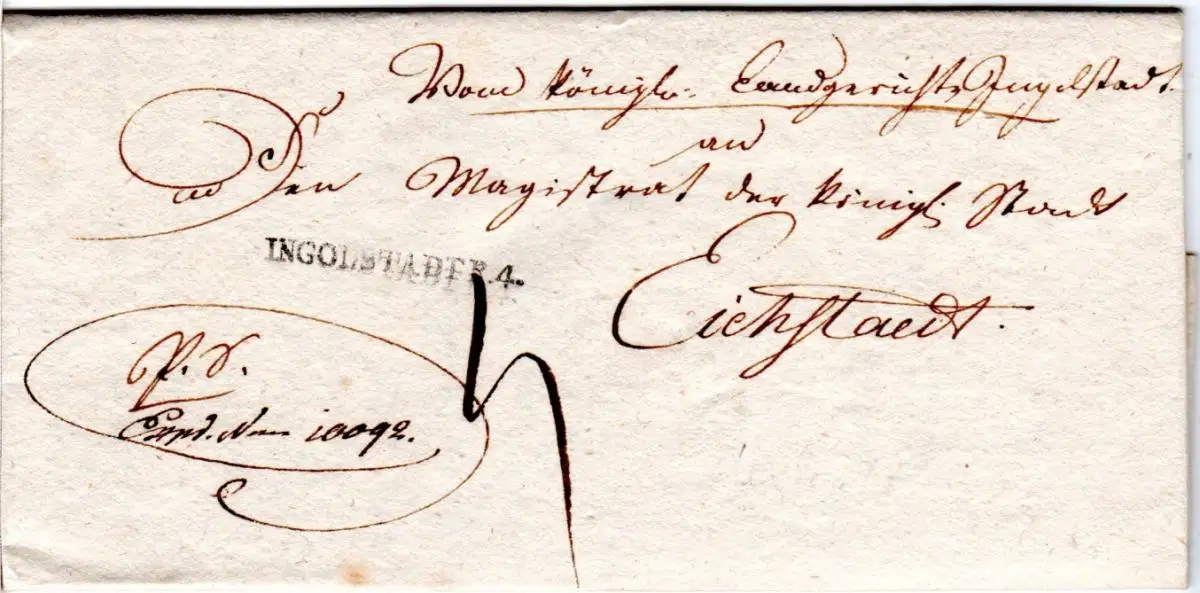 Vom königl. Landgericht Ingolstadt
an
Den Magistrat der königl. Stadt
INGOLSTADT R.4.
Eichstaedt.
P. S.
Exped. Num 10092.
4